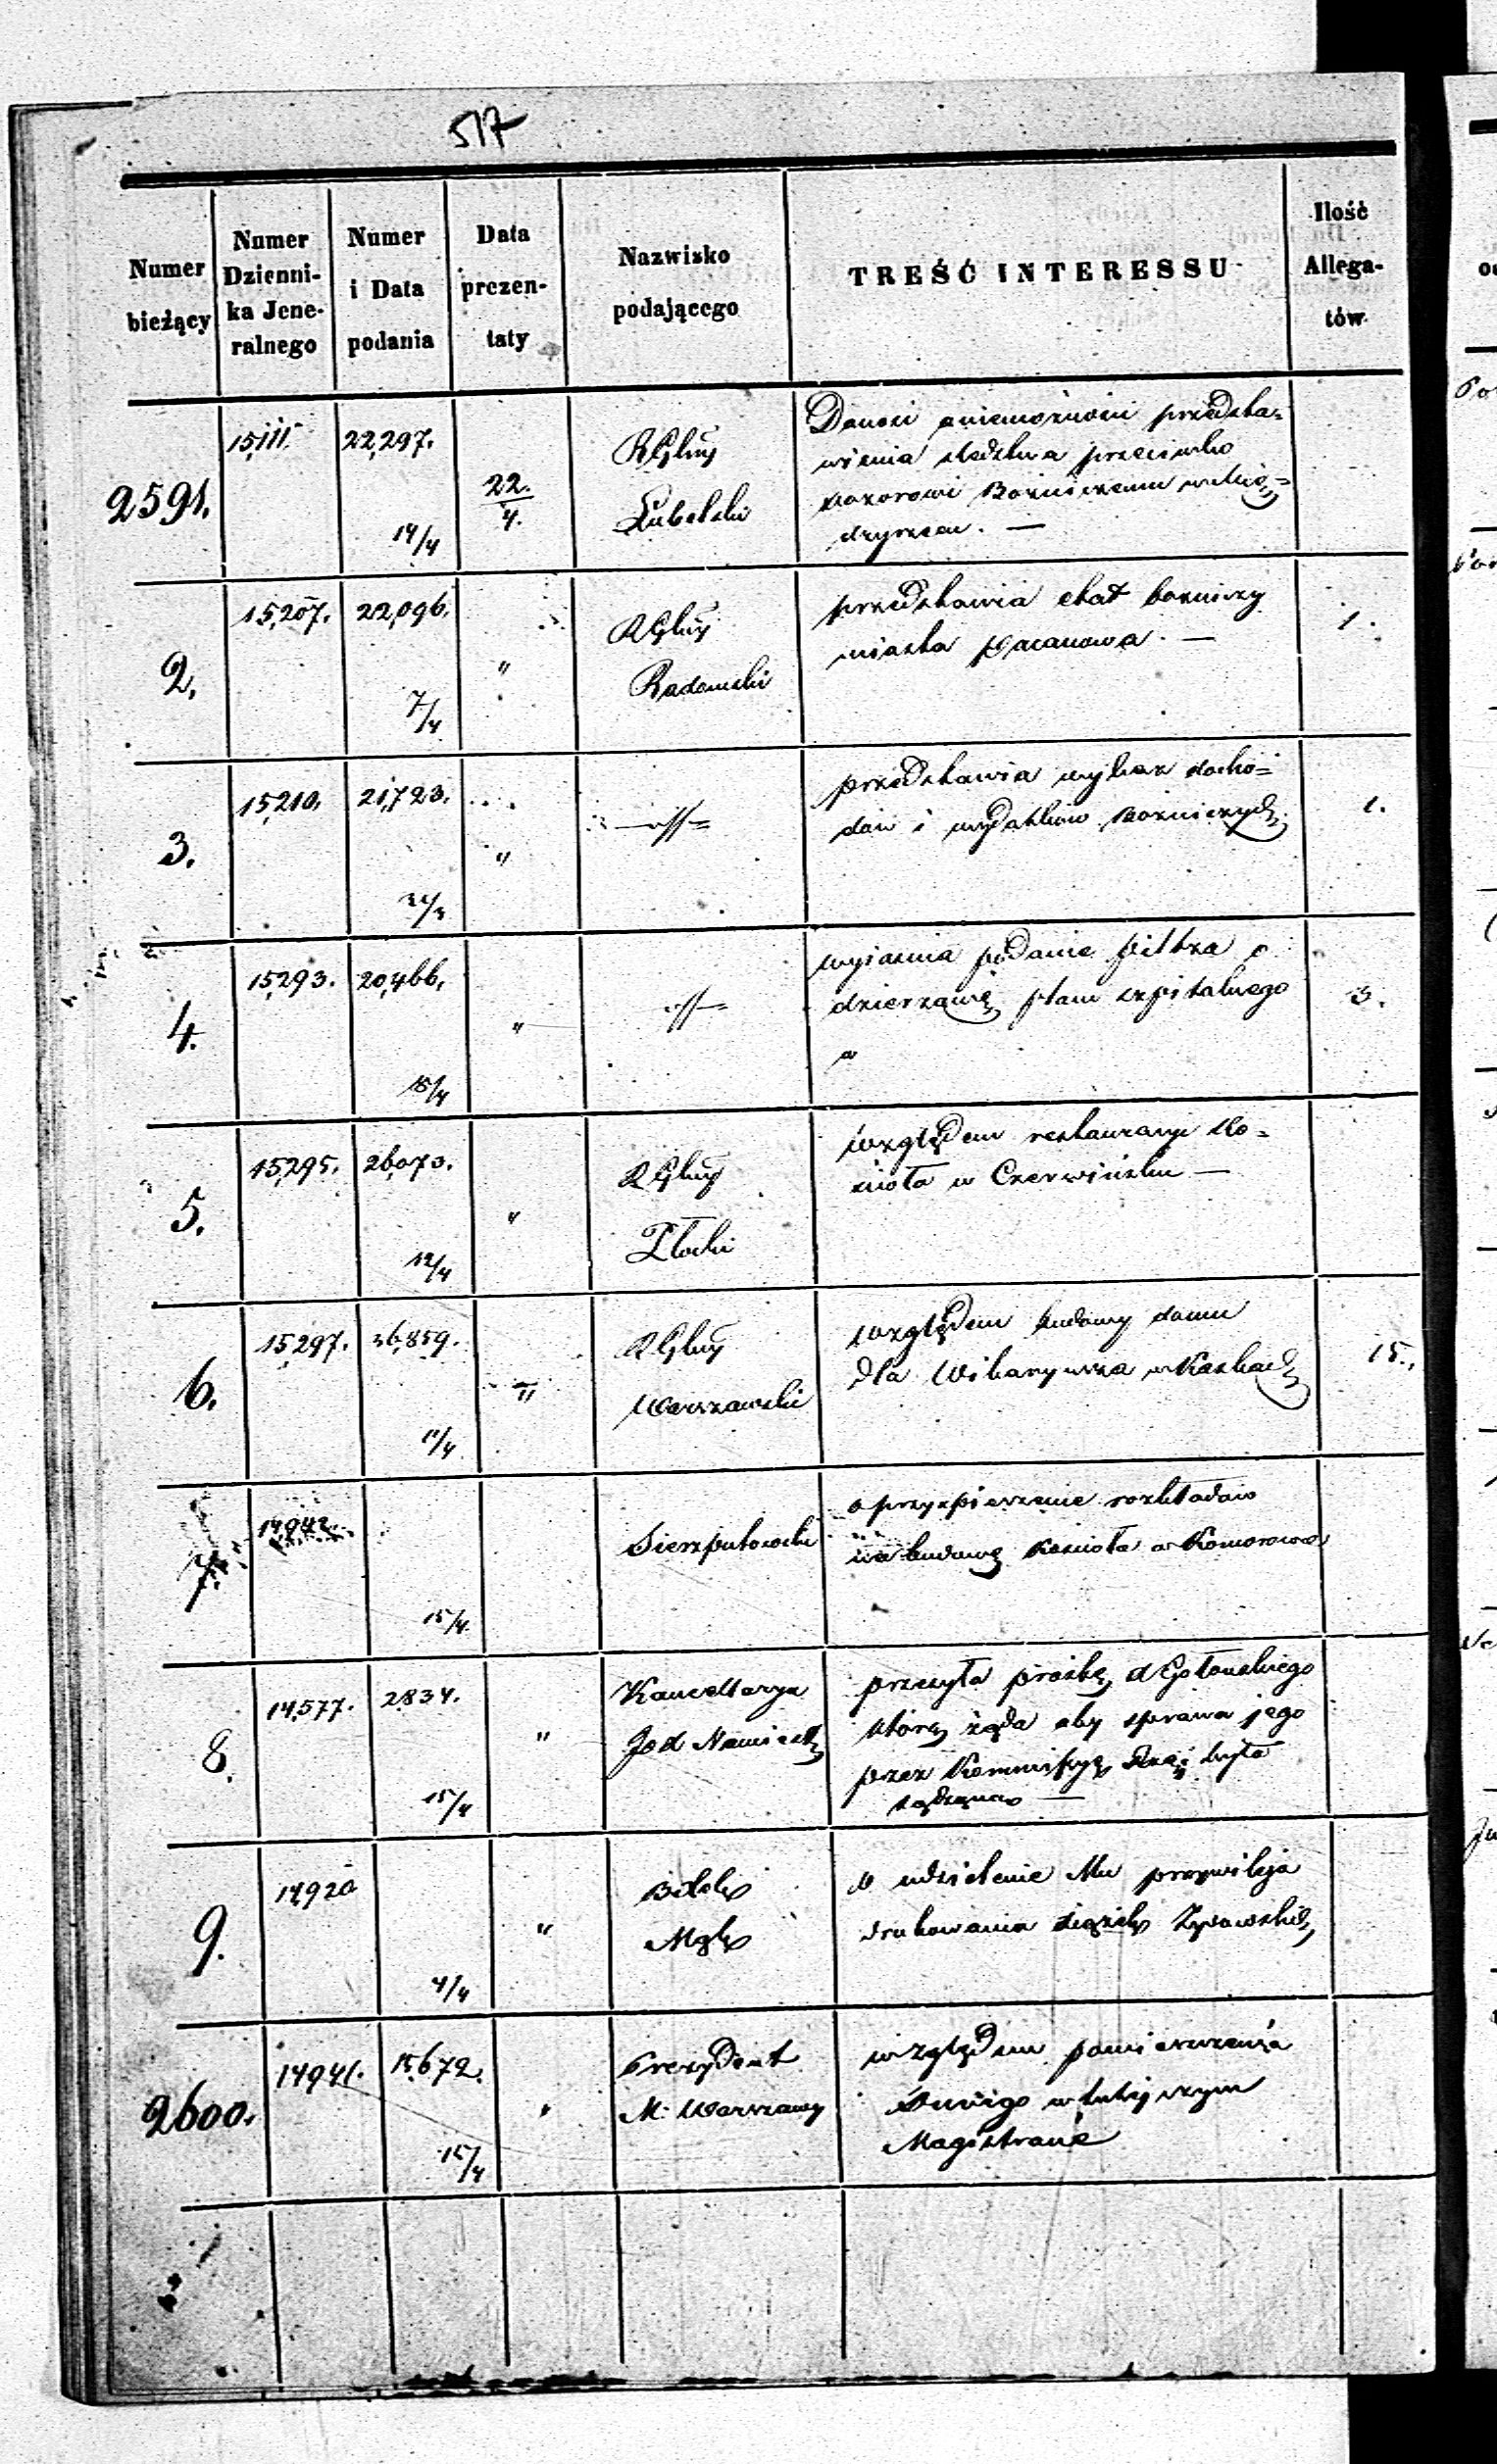 517
Numer bieżący | Numer Dzienni-ka Jene-ralnego | Numer i Data podania | Data prezen-taty | Nazwisko podającego | TREŚĆ INTERESSU | Ilość Allega-tów
2591. | 15,111. | 22,297. 14/4 | 22./4. | RGlny Lubelski | Donosi o niemożności przedsta=
wienia śledztwa przeciwko
dozorowi Bożniczemu w
2. | 15,207. | 22,096. 7/4 | " | RGlny Radomski | przedstawia etat bożniczy
miasta Pacanowa. — | 1.
3. | 15,210. | 21,723. | " | przedstawia wykaz docho=
dów i wydatków Bożniczych | 1.
4. | 15,293. | 20,466. 15/4 | " | wyjaśnia podanie o
dzierżawę placu szpitalnego | 3.
w
5. | 15,295. | 26,073. 12/4 | " | RGlny Płocki | względem restauracyi Ko=
ścioła w Czerwińsku —
6. | 15,297. | 36,859. 11/4 | " | RGlny Warszawski | względem budowy domu
dla Wikaryusza w | 15.
7. | 14,942. | 15/4 | Sierzputowski | o przyspieszenie rozkładów
na budowę Kościoła w Komorowie
8. | 14,577. | 2834. 15/4 | " | Kancellarya JOX Namiestn | przesyła prośbę
który żąda aby sprawa jego
przez Kommissyę Rzą: była
sądzona —
9. | 14,920 | 4/4 | " | o udzielenie Mu przywileju
drukowania książek Żydowskich
2600. | 14941. | 15,672. 15/4 | " | Prezydent M. Warszawy | względem pomieszczenia
w tutejszym
Magistracie